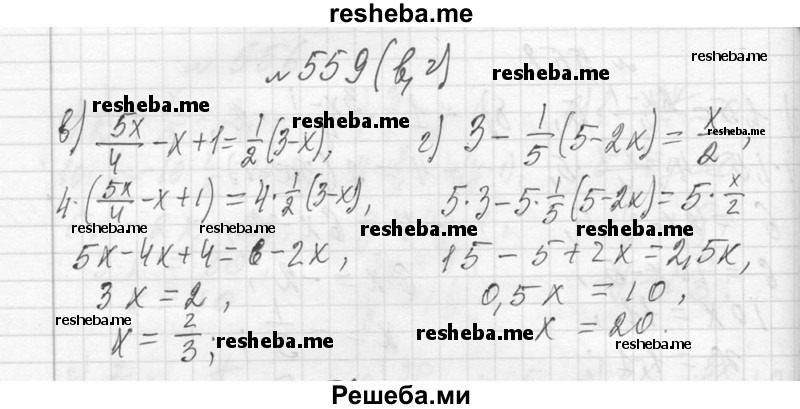 resheba.me
№ 559 (в, г)
resheba.me
resheba.me
resheba.me
в) 5x/4 - x + 1 = 1/2 (3-x),
resheba.me
4·(5x/4 - x + 1) = 4·1/2 (3-x),
resheba.me resheba.me resheba.me
5x - 4x + 4 = 6 - 2x,
3x = 2,
resheba.me
x = 2/3;
resheba.me
г) 3 - 1/5 (5-2x) = x/2,
resheba.me
5·3 - 5·1/5 (5-2x) = 5·x/2
resheba.me
15 - 5 + 2x = 2,5x,
0,5x = 10,
resheba.me
x = 20.
resheba.me
Решеба.ми